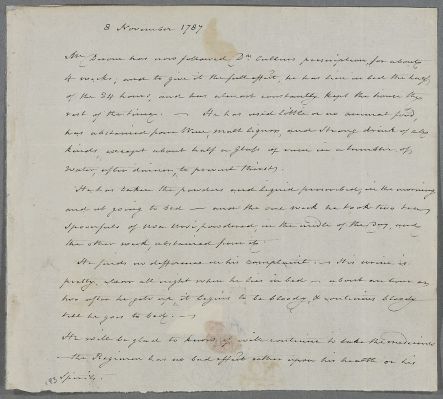 8 November 1787
Mr Dunn has now followed Dr Cullens prescription for about
4 weeks, and to give it the full effect, he has been in bed the half
of the 24 hours, and has almost constantly kept the house the
rest of the time. — He has used little or no animal food,
has abstained from Wine, malt liquor, and strong drink of all
kinds, except about half a Glass of wine in a tumbler of
Water, after dinner, to prevent thirst.
He has taken the powders and liquid prescribed, in the morning
and at going to bed — and the one week he took two tea
Spoonfuls of Uva Ursi powdered, in the middle of the Day, and
the other week, abstained from it.
He finds no difference in his complaint. — His urine is
pretty clear all night when he lies in bed — about one hour or
two after he gets up, it begins to be bloody, & continues bloody
till he goes to bed. —
He will be glad to know, if will continue to take the medicines
— the Regimen has no bad effect either upon his health or his
Spirits.